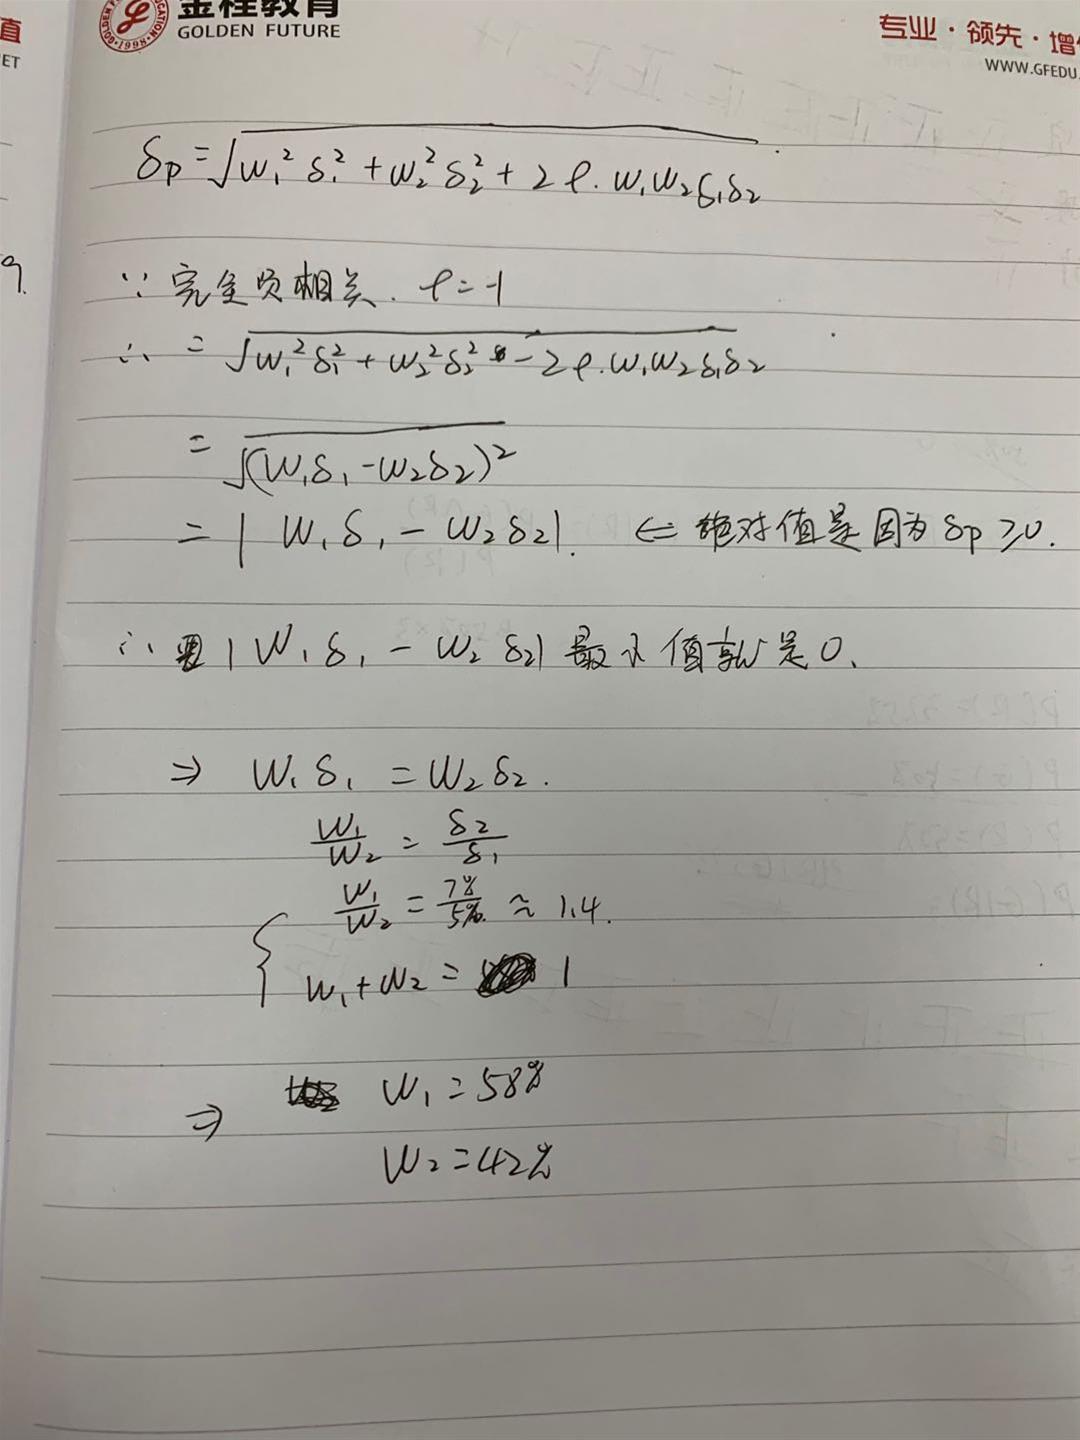 直
金程教育
GOLDEN FUTURE
专业·领先·增
ET
WWW.GFEDU.
δp=√w₁²δ₁²+w₂²δ₂²+2ρ.w₁w₂δ₁δ₂
9.
∵ 完全负相关. ρ=-1
∴ = √w₁²δ₁²+w₂²δ₂²-2ρ.w₁w₂δ₁δ₂
= √(w₁δ₁-w₂δ₂)²
= | w₁δ₁-w₂δ₂|. ⇐ 绝对值是因为δp≥0.
∴ |w₁δ₁-w₂δ₂| 最小值就是0.
⇒ w₁δ₁=w₂δ₂.
w₁/w₂=δ₂/δ₁
w₁/w₂=7%/5%≈1.4.
w₁+w₂=1
⇒ w₁=58%
w₂=42%